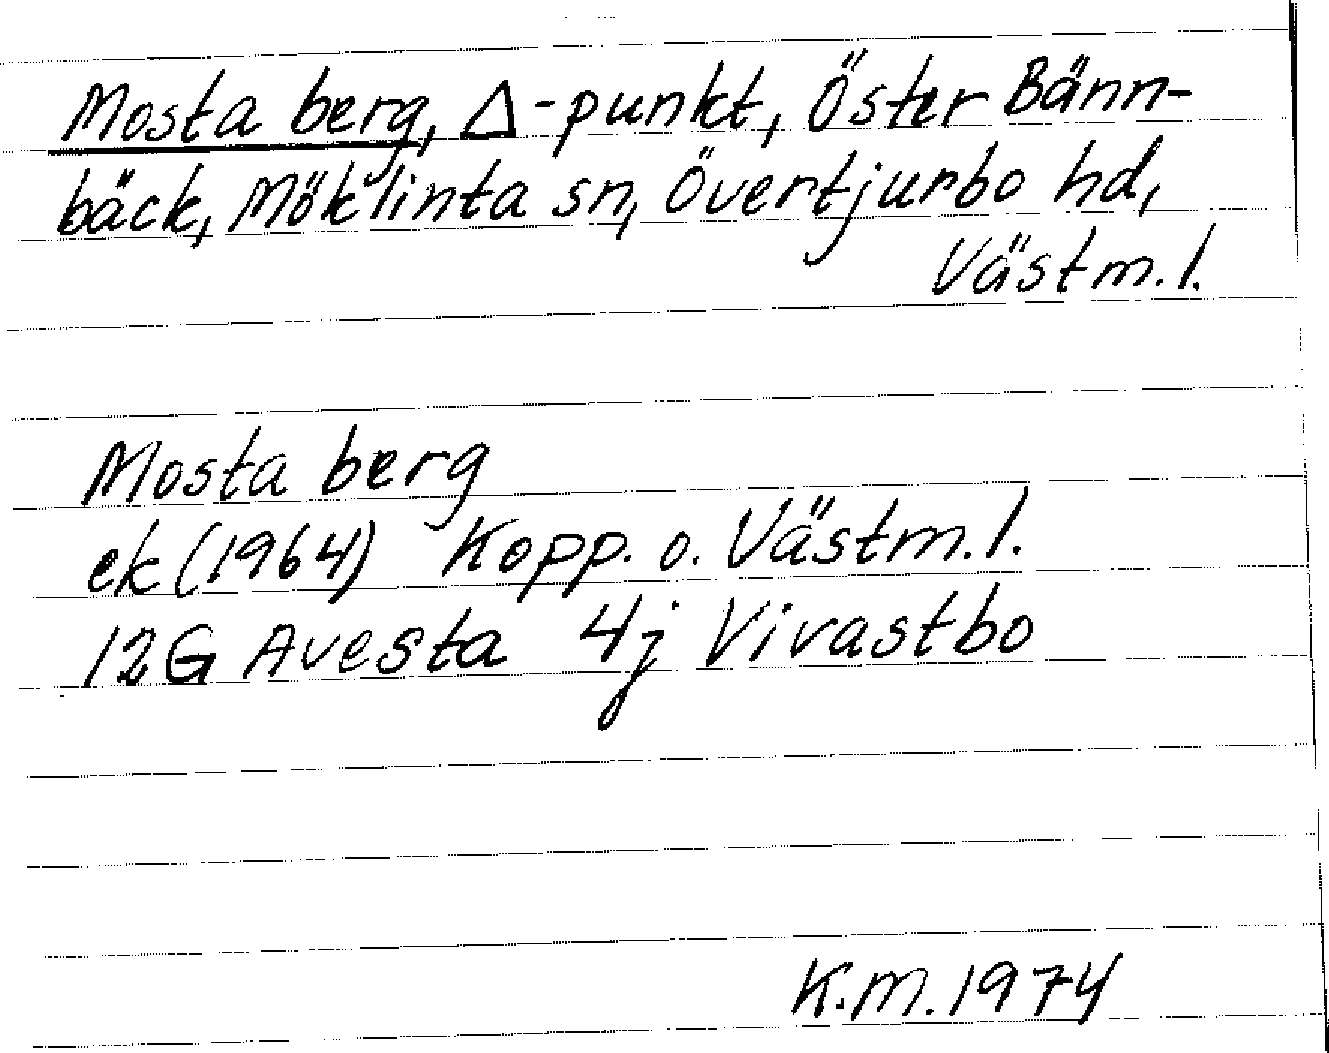 Mosta berg, Δ-punkt, Öster Bänn-
bäck, Möklinta sn, Övertjurbo hd,
Västm.l.
Mosta berg
ek (1964) Kopp. o. Västm.l.
12G Avesta 4j Vivastbo
K.M. 1974